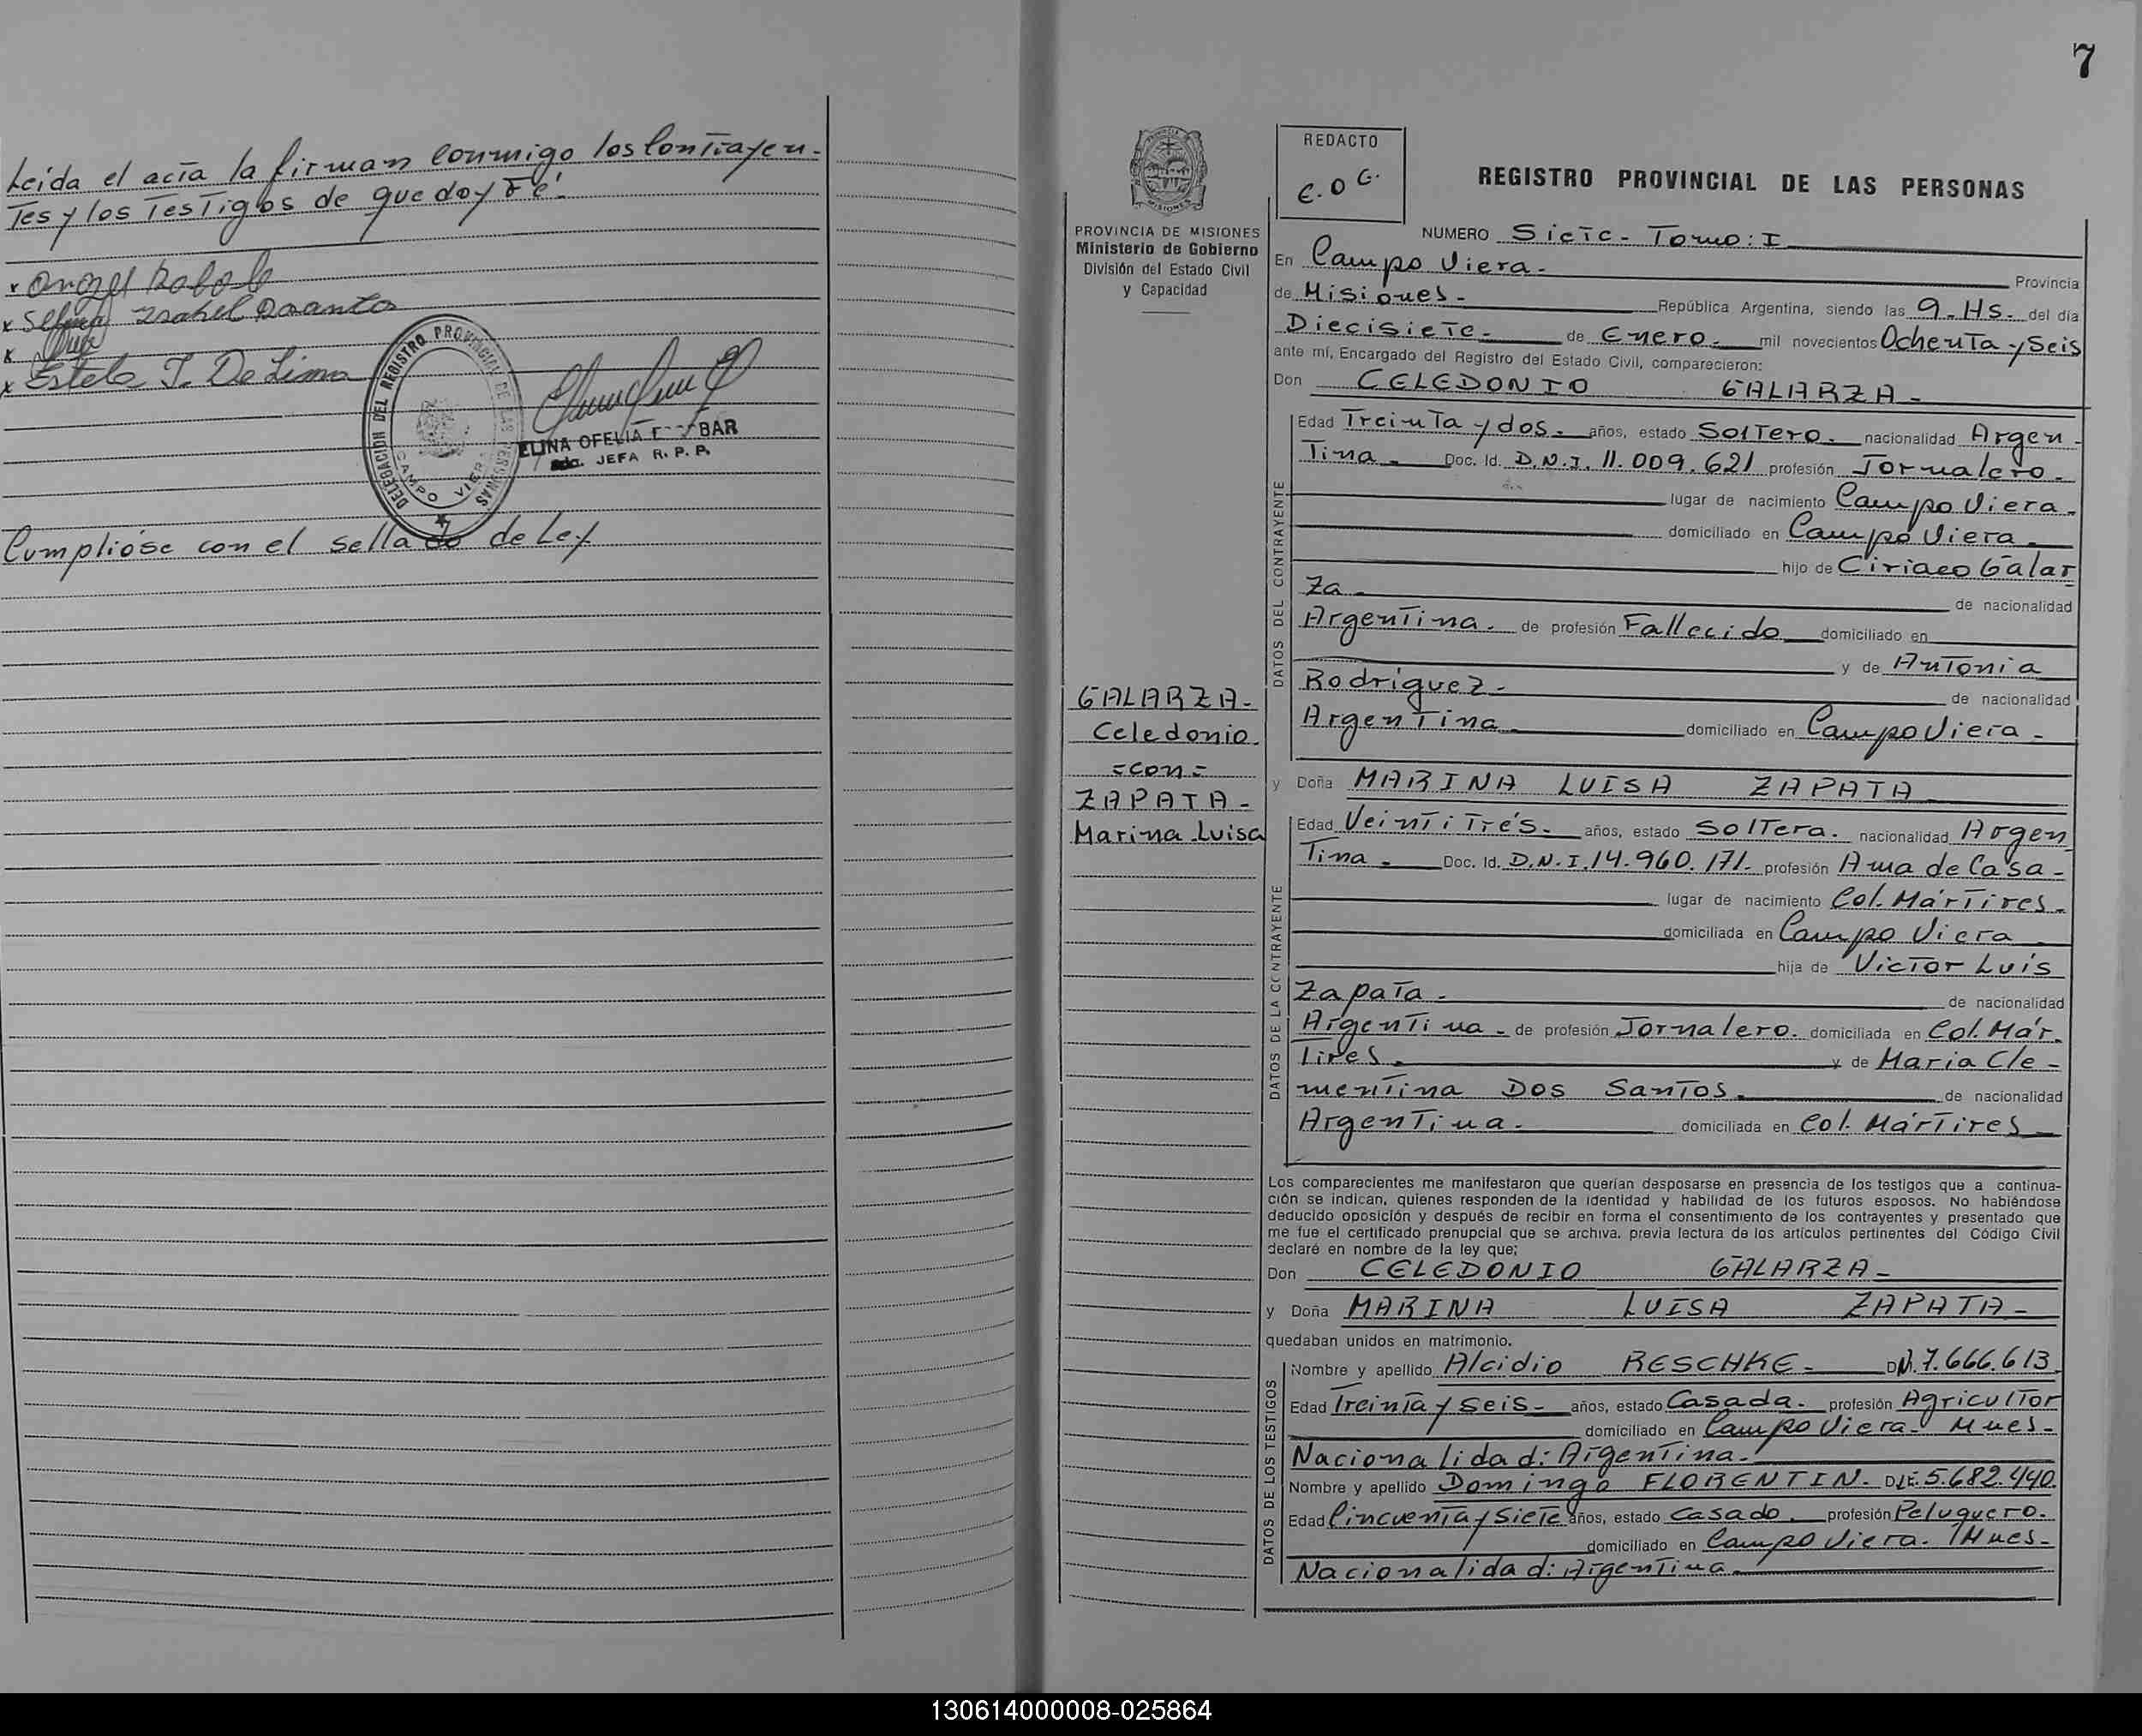 Leída el acta la firman conmigo los Contrayen-
tes y los Testigos de que doy Fé.
Estela T. De Lima
DELEGACION DEL REGISTRO PROVINCIAL DE LAS PERSONAS
CAMPO VIERA
ELINA OFELIA
JEFA R. P. P.
Cumplióse con el sellado de Ley
7
PROVINCIA DE MISIONES
Ministerio de Gobierno
División del Estado Civil
y Capacidad
GALARZA-
Celedonio.
=con=
ZAPATA-
Marina Luisa
REDACTO
E.O.G.
REGISTRO PROVINCIAL DE LAS PERSONAS
NUMERO Siete- Tomo: I
En Campo Viera- Provincia
de Misiones- República Argentina, siendo las 9-HS. del día
Diecisiete- de Enero- mil novecientos Ochenta y Seis
ante mí, Encargado del Registro del Estado Civil, comparecieron:
Don CELEDONIO GALARZA-
DATOS DEL CONTRAYENTE
Edad Treinta y dos- años, estado Soltero- nacionalidad Argen-
Tina- Doc. Id. D.N.I. 11.009.621 profesión Jornalero-
lugar de nacimiento Campo Viera-
domiciliado en Campo Viera-
hijo de Ciriaco Galar
za- de nacionalidad
Argentina. de profesión Fallecido domiciliado en
y de Antonia
Rodríguez- de nacionalidad
Argentina domiciliado en Campo Viera-
y Doña MARINA LUISA ZAPATA
DATOS DE LA CONTRAYENTE
Edad Veinti Trés- años, estado Soltera. nacionalidad Argen
Tina- Doc. Id. D.N.I. 14.960.171- profesión Ama de Casa-
lugar de nacimiento Col. Mártires-
domiciliada en Campo Viera
hija de Victor Luis
Zapata- de nacionalidad
Argentina- de profesión Jornalero. domiciliada en Col. Már-
Tires- y de Maria Cle-
mentina Dos Santos- de nacionalidad
Argentina- domiciliada en Col. Mártires
Los comparecientes me manifestaron que querían desposarse en presencia de los testigos que a continua-
ción se indican, quienes responden de la identidad y habilidad de los futuros esposos. No habiéndose
deducido oposición y después de recibir en forma el consentimiento de los contrayentes y presentado que
me fue el certificado prenupcial que se archiva, previa lectura de los artículos pertinentes del Código Civil
declaré en nombre de la ley que;
Don CELEDONIO GALARZA-
y Doña MARINA LUISA ZAPATA-
quedaban unidos en matrimonio.
DATOS DE LOS TESTIGOS
Nombre y apellido Alcidio RESCHKE- 7.666.613
Edad Treinta y seis- años, estado Casada- profesión Agricultor
domiciliado en Campo Viera- Mnes-
Nacionalidad: Argentina-
Nombre y apellido Domingo FLORENTIN- D.I.E. 5.682.440.
Edad Cincuenta y Siete años, estado Casado. profesión Peluquero.
domiciliado en Campo Viera. Mnes-
Nacionalidad: Argentina
130614000008-025864